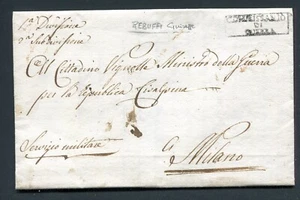 1ª Divisione
2ª Subdivisione
Al Cittadino Vignolle Ministro della Guerra
per la Republica Cisalpina
Servizio militare
a
Milano